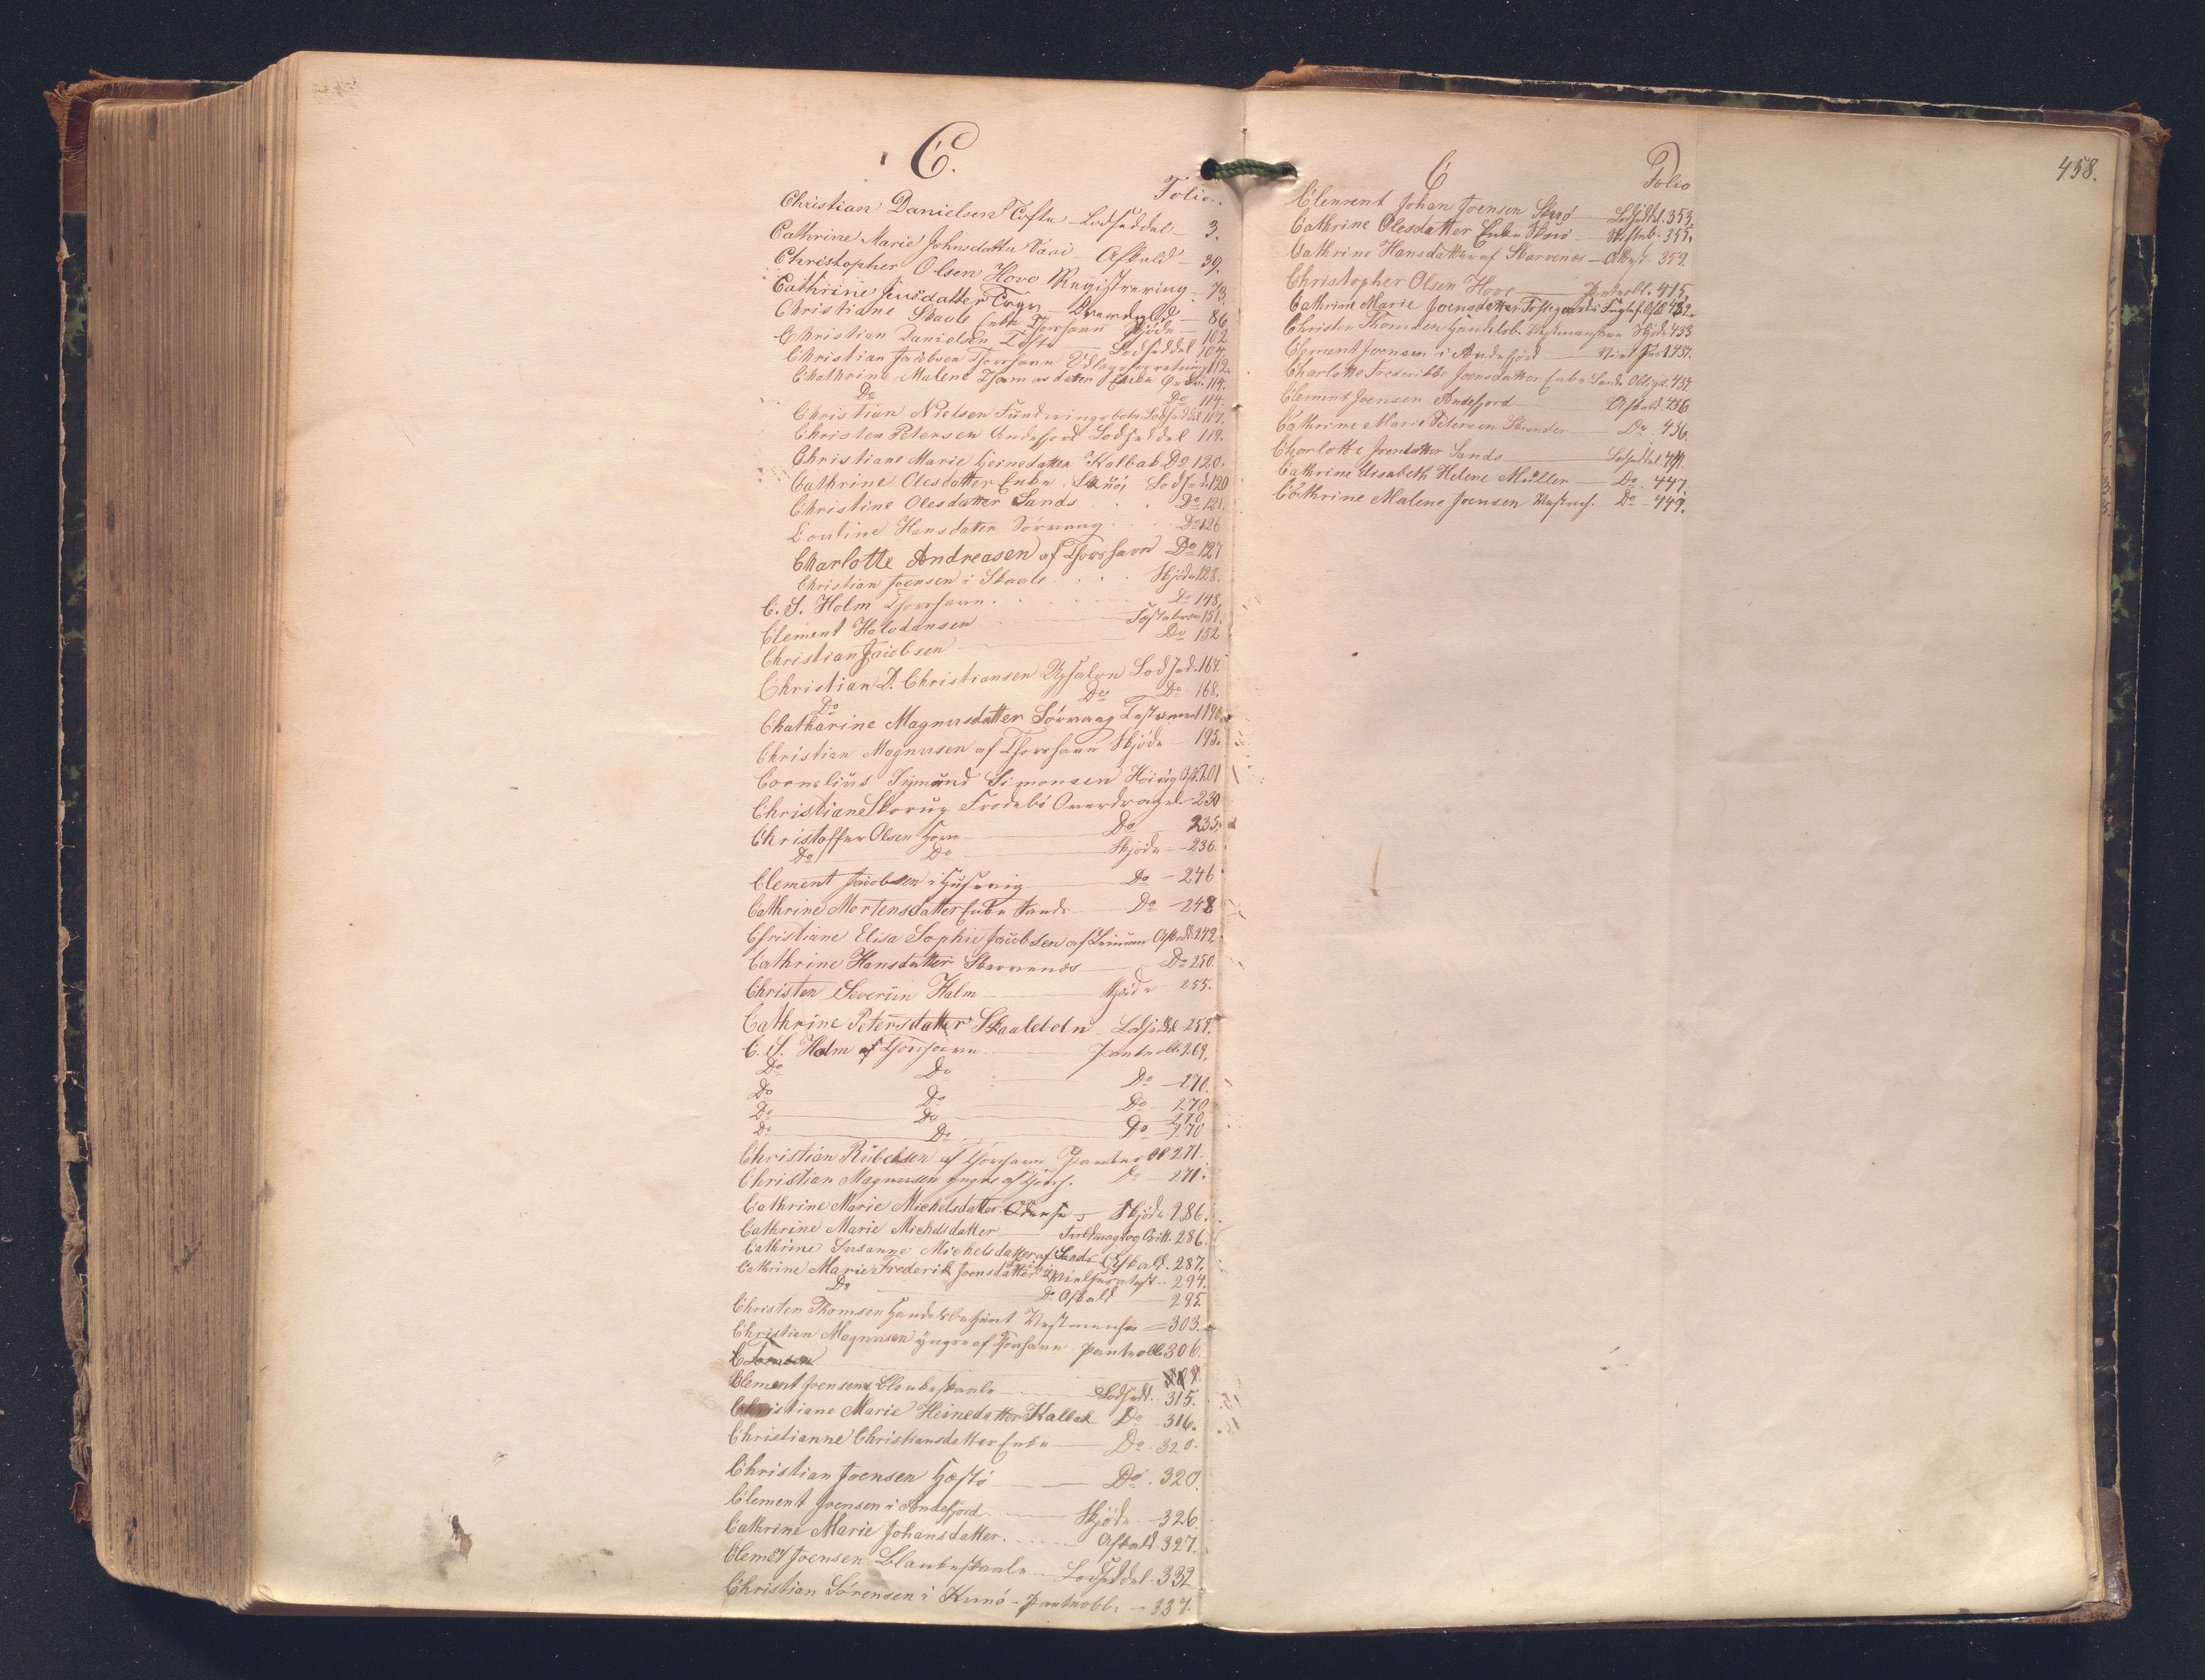 C.
Folio.
Christian Danielsen Tofte Lodseddel 3.
Cathrine Marie Johnsdatter Vaai Afkald 39.
Christopher Olsen Hove Registrering 73.
Cathrine Jensdatter 86
Christiane Skaale Enke Thorshavn Skjöde 102
Christian Danielsen Tofte Lodseddel 104.
Christian Jacobsen Thorshavn Udlægsforretning 112.
Chathrine Malene Thomasdatter Enke 114.
Do Do 114.
Christian Nielsen Funding Lodseddel 117.
Christen Petersen Andefjord Lodseddel 119.
Christiane Marie Heinedatter Kalbak Do 120.
Cathrine Olesdatter Enke Skuö, Lodsed. 120
Christine Olesdatter Sands Do 121.
Couline Hansdatter Sörvaag Do 126
Charlotte Andreasen af Thorshavn Do 127
Christian Joensen i Skaale Skjöde 128.
C. S. Holm Thorshavn. Do 148.
Clement Halvdansen Fæstebrev 151.
Christian Jacobsen Do 152
Christian D. Christiansen Lodsed. 167.
Do Do Do 168.
Chatharine Magnusdatter Sörvaag Testament 190.
Christian Magnusen af Thorshavn Skjöde 195.
Cornelius Sigmund Simonsen Hoivig Afk. 201
Christiane Skorup Frodebö Overdragelse 230
Christoffer Olsen Hove Do 235.
Do Do Skjöde 236.
Clement Jacobsen i Husevig Do 246
Cathrine Mortensdatter Enke Sands Do 248
Christiane Elisa Sophie Jacobsen af Afkald 249
Cathrine Hansdatter Skarvenæs Do 250.
Christen Severin Holm Skjöde 255.
Cathrine Petersdatter Skaalebotn Lodseddel 259.
C. S. Holm af Thorshavn Panteobl. 269.
Do Do Do 270.
Do Do Do 270
Do Do 270
Do Do Do 270
Christian Rübeksen af Thorshavn Panteobl 271.
Christian Magnusen yngre af Thorsh. Do 271.
Cathrine Marie Michelsdatter Skjöde 286.
Cathrine Marie Michelsdatter Fuldmagt og Qvitt. 286.
Cathrine Susanne Michelsdatter af Sands Afkald. 287.
Cathrine Marie Frederik Joensdatter Vielsesattest 294.
Do Do Afkald 295.
Christen Thomsen Handelsbetjent Vestmanhavn 303.
Christian Magnusen yngre af Thorshavn Panteobl. 306.
C Joensen
Clement Joensen Blankeskaale Lodsedd. 315.
Christiane Marie Heinedatter Kalbak Do 316.
Christianne Christiansdatter Enke Do 320.
Christian Joensen Hestö Do. 320.
Clement Joensen i Andefjord Skjöde. 326.
Cathrine Marie Johansdatter. Afkald 327.
Clement Joensen Blankeskaale Lodseddel 332
Christian Sörensen i Kunö Panteobl. 337.
C
Folio
458.
Clement Johan Joensen Skuö Lodseddel. 353.
Cathrine Olesdatter Enke Skuö Skifteb. 355.
Cathrine Hansdatter af Skarvenæs Attest 359.
Christopher Olsen Hove Panteobl. 415.
Cathrine Marie Joensdatter Toftegaard i Fuglef. Afk 432.
Christen Thomsen Handelsb. Vestmanhavn Skjöde 433
Clement Joensen i Andefjord 437.
Charlotte Frederikke Joensdatter Enke Sands Obligt. 437.
Clement Joensen Andefjord Afkald. 436
Cathrine Marie Petersen Strender Do 436.
Charlotte Joensdatter Sands Lodseddel 441.
Cathrine Elisabeth Helene Müller Do. 447.
Cathrine Malene Joensen Vestmh. Do 449.